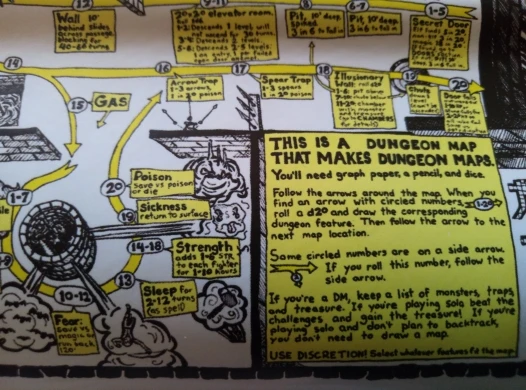 8
6-7
1-5
Wall 10'
behind slides
across passage,
blocking for
40-60 turns
20x20 elevator room
1-2: Descends 1 level
3-4: Descends 2 levels
5-6: Descends 3 levels
Pit, 10' deep
3 in 6 to fall in
Pit, 10' deep
3 in 6 to fall in
Secret Door
14
16
17
18
19
20
Arrow Trap
1-3 arrows
1 in 20 poison
Spear Trap
1-3 spears
1 in 20 poison
Illusionary
CHAMBERS
for detail)
15
GAS
20
Poison
save vs poison
or die
19
Sickness
return to surface
1-7
14-18
Strength
adds 1-6 STR
to each fighter
for 1-10 hours
13
10-12
Sleep for
2-12 turns
(as spell)
Fear:
save vs
magic or
run back
120'
THIS IS A DUNGEON MAP
THAT MAKES DUNGEON MAPS.
You'll need graph paper, a pencil, and dice.
Follow the arrows around the map. When you
find an arrow with circled numbers, 1-20
roll a d20 and draw the corresponding
dungeon feature. Then follow the arrow to the
next map location.
Some circled numbers are on a side arrow.
If you roll this number, follow the
side arrow.
If you're a DM, keep a list of monsters, traps,
and treasure. If you're playing solo beat the
challenges and gain the treasure! If you're
playing solo and don't plan to backtrack,
you don't need to draw a map.
USE DISCRETION! Select whatever features fit the map.